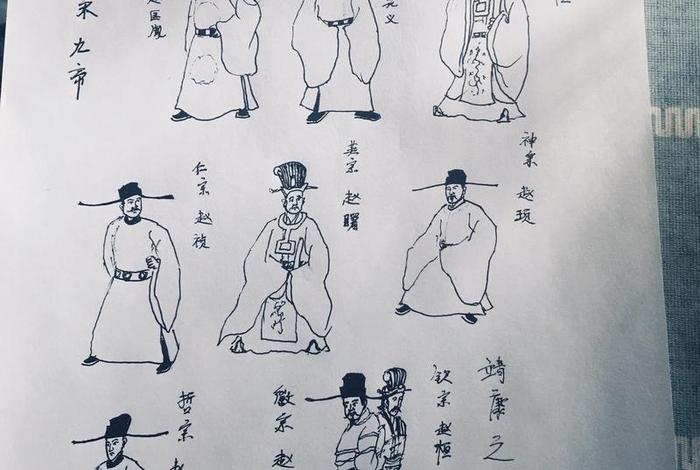 宋九帝
赵匡胤
义
仁宗 赵祯
英宗 赵曙
神宗 赵顼
哲宗 赵
徽宗 赵
钦宗 赵桓
靖康之